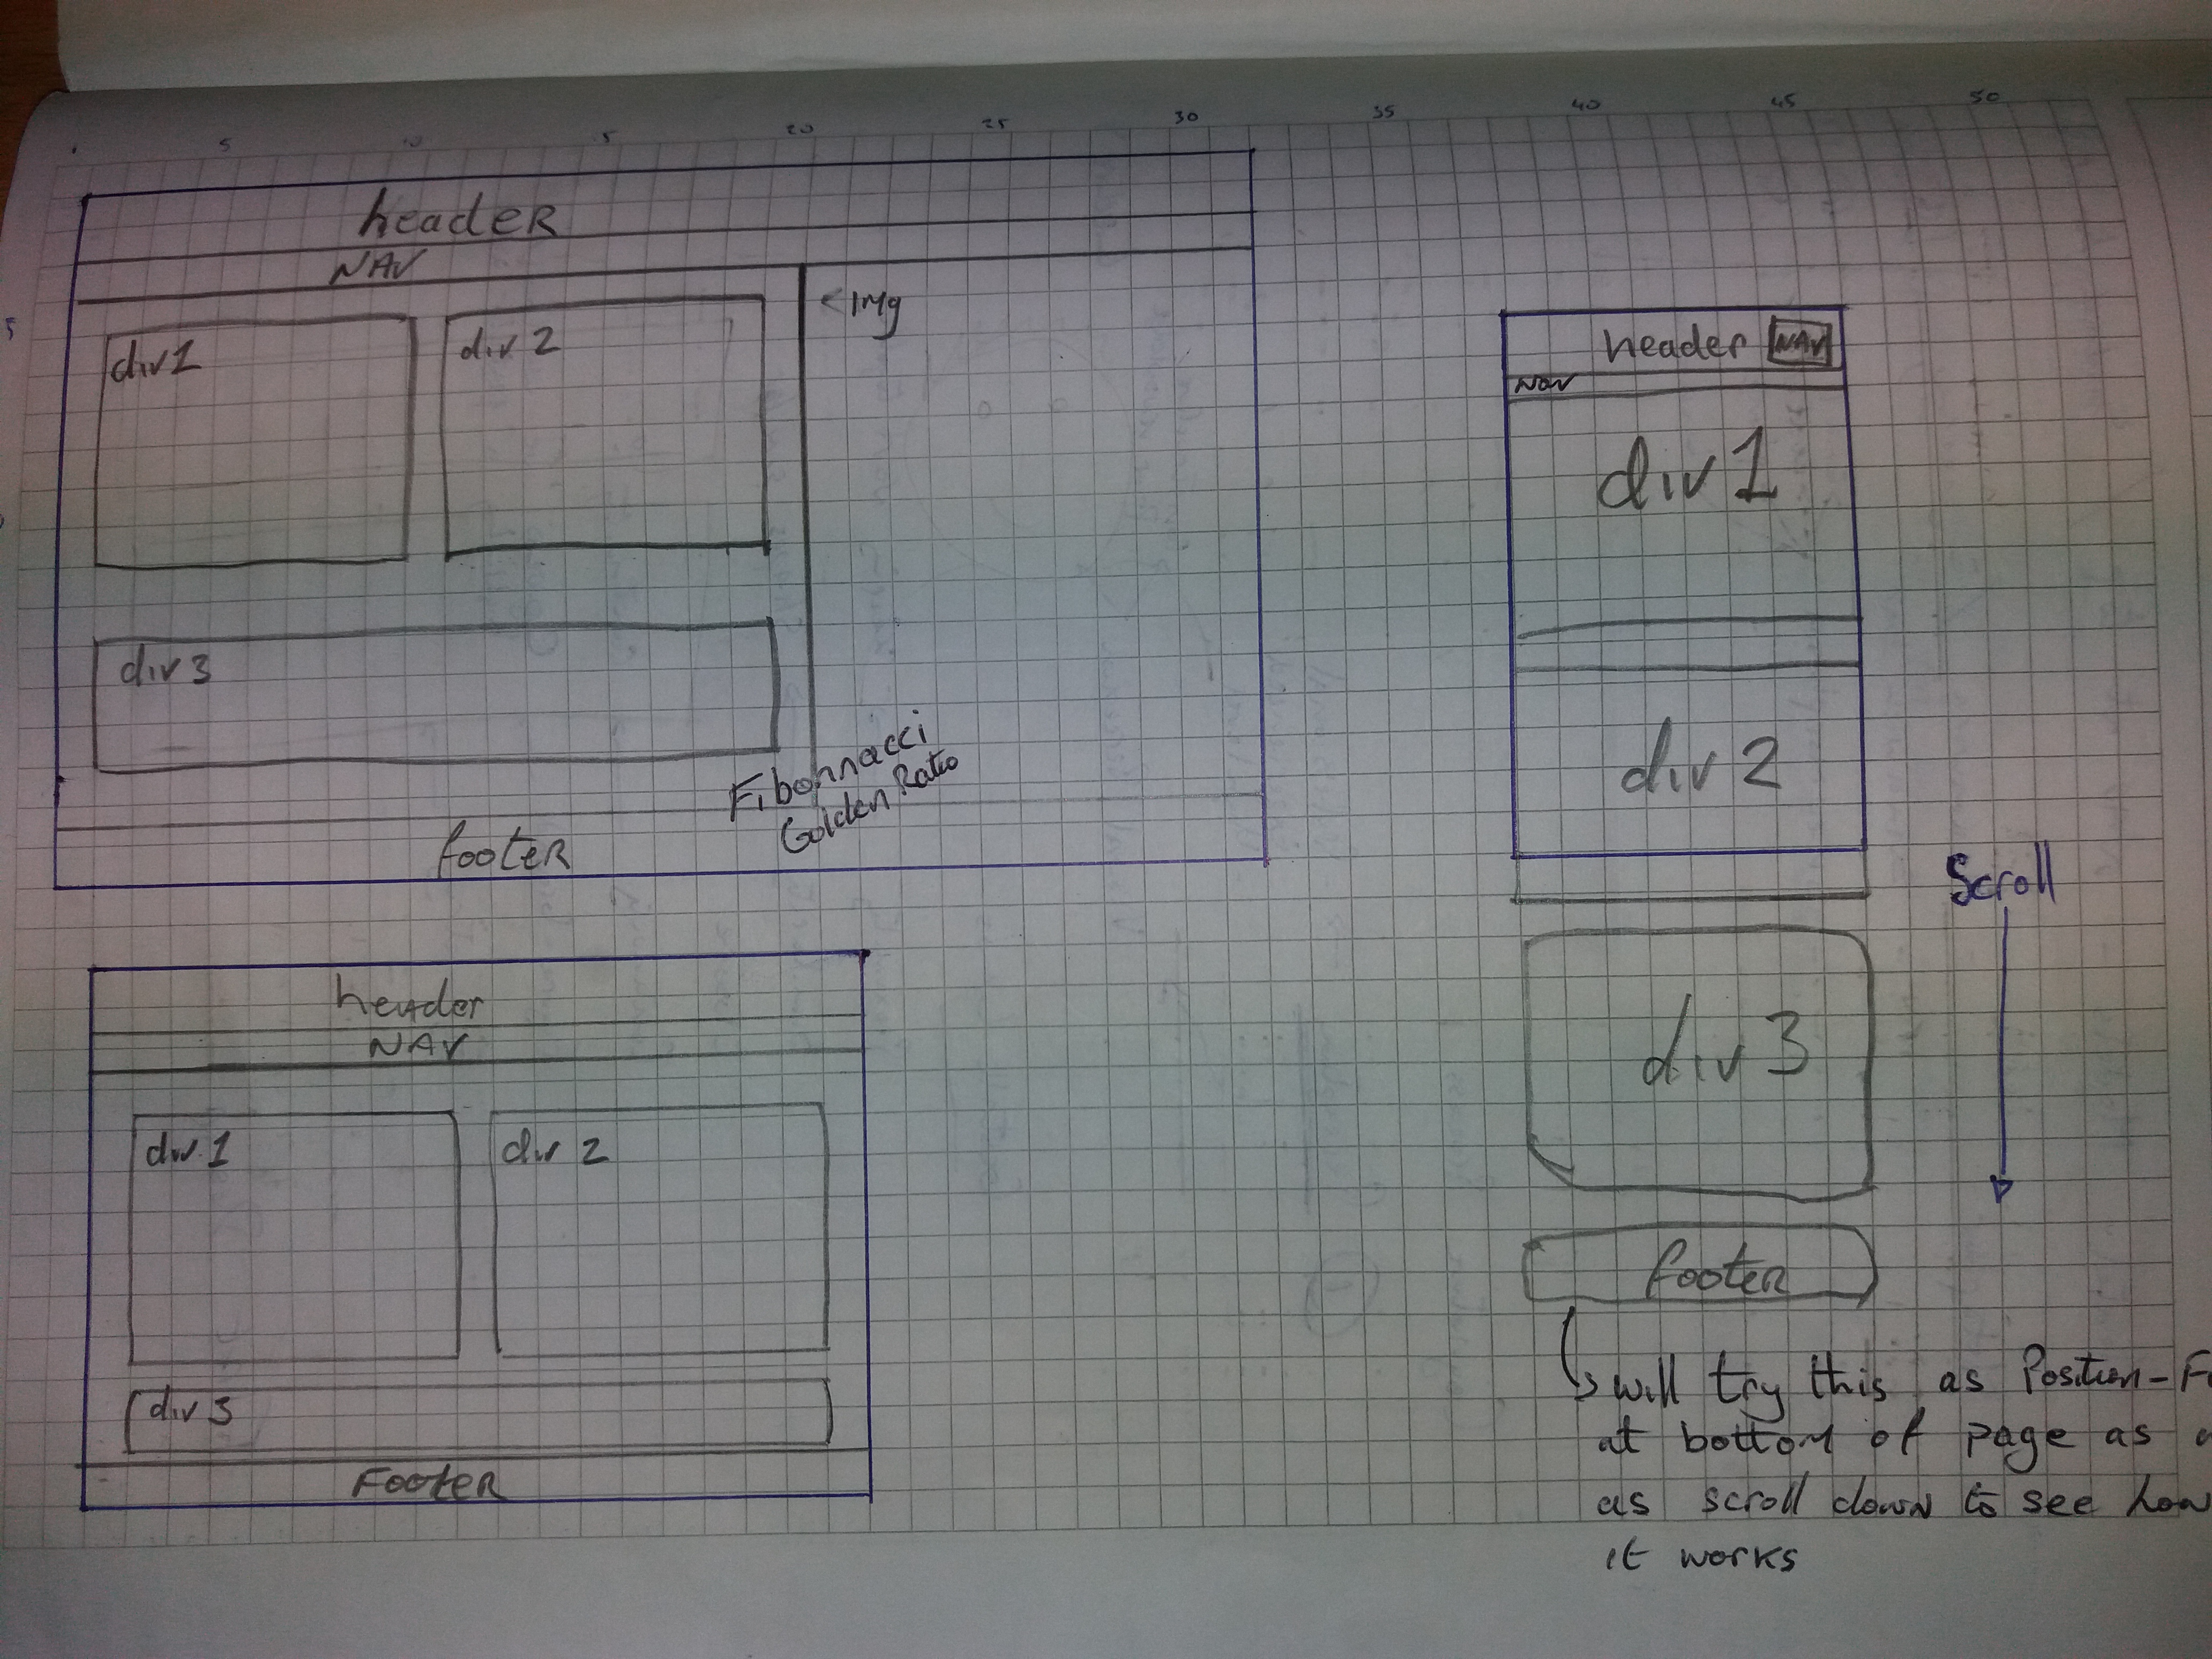 5 10 15 20 25 30 35 40 45 50
5
header
NAV
<Img
div1
div 2
div 3
Fibonnacci
Golden Ratio
footer
header NAV
NAV
div 1
div 2
Scroll
div 3
footer
will try this as Position-F
at bottom of page as
as scroll down to see how
it works
header
NAV
div 1
div 2
div 3
Footer